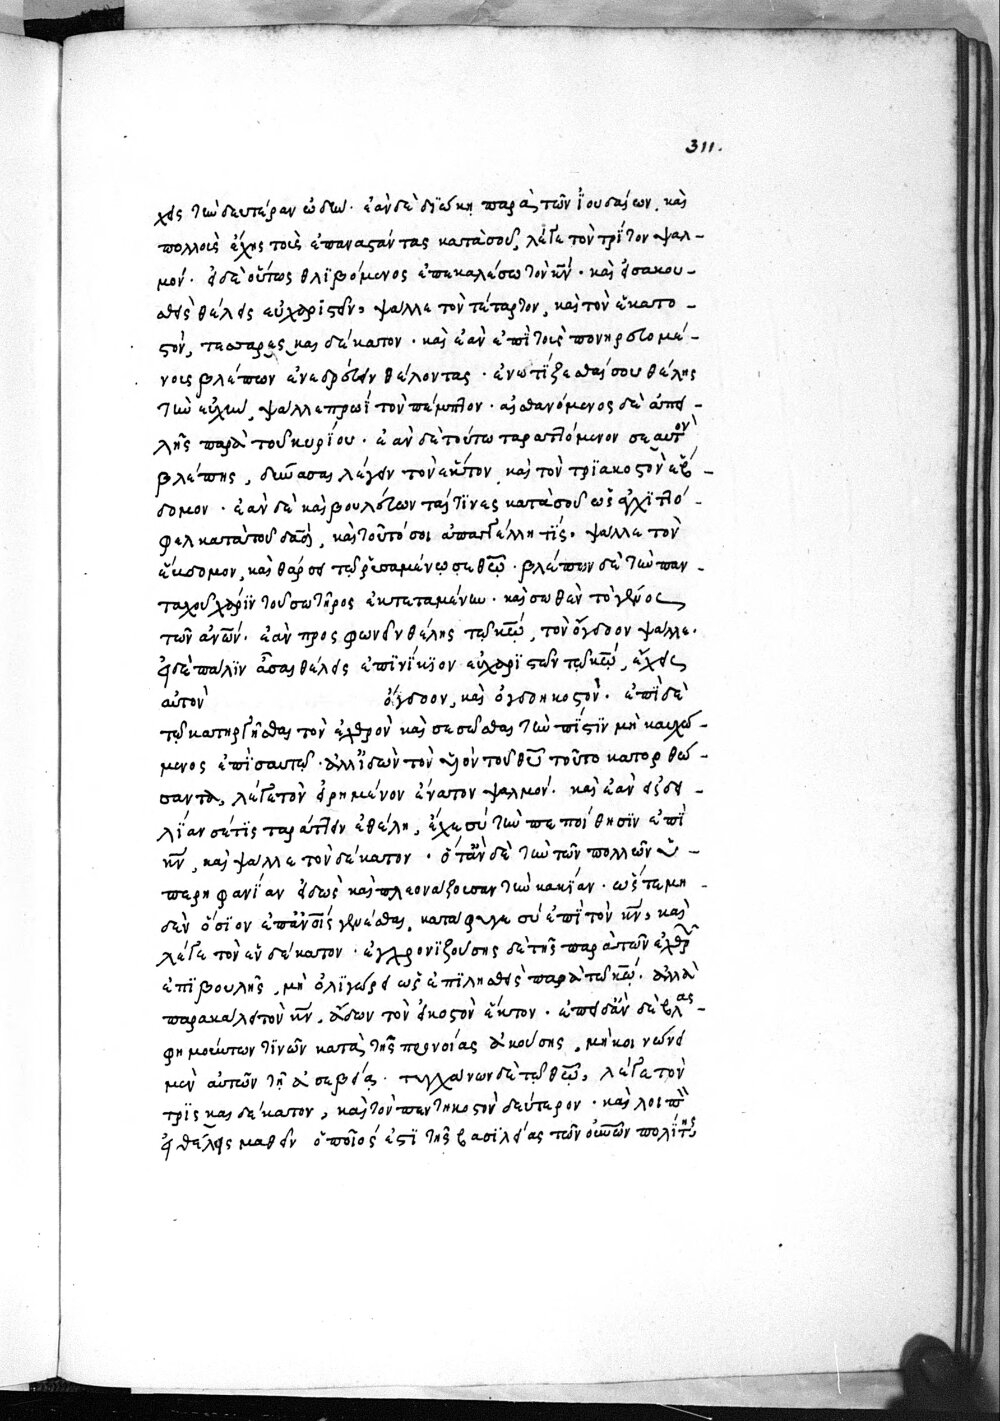 311.
χεις τὴν δευτέραν ὠδὴν· ἐὰν δὲ διώκῃ παρὰ τῶν ἰουδαίων, καὶ
πολλοὺς ἔχῃς τοὺς ἐπαναστάντας κατὰ σοῦ, λέγε τὸν τρίτον ψαλ-
μόν· εἰ δὲ οὕτως θλιβόμενος ἐπεκαλέσω τὸν κν̄· καὶ εἰσακου-
σθεὶς θέλεις εὐχαριστεῖν, ψάλλε τὸν τέταρτον, καὶ τὸν ἑκατο-
στὸν, τεσσαρες και δέκατον· καὶ ἐὰν ἐπὶ τοὺς πονηρευομέ-
νους βλέπων ἐνεδρεύειν θέλοντας· ἐνωτίζεσθαί σου θέλῃς
τὴν εὐχὴν, ψάλλε πρωῒ τὸν πέμπτον· αἰσθανόμενος δὲ ἀπει-
λῆς παρὰ τοῦ κυρίου· ἐὰν δὲ τούτω ταραττόμενον σεαυτὸν
βλέπῃς, δύνασαι λέγειν τὸν ἕκτον, καὶ τὸν τριακοστὸν ἕβ-
δομον· ἐὰν δὲ καὶ βουλεύωνταί τινες κατὰ σοῦ ὡς ἀχιτό-
φελ κατὰ τοῦ δᾱδ̄, καὶ τοῦτό σοι ἀπαγγέλλῃ τίς· ψάλλε τὸν
ἕβδομον, καὶ θάρσει τῷ ῥυσαμένῳ σε θῶ· βλέπων δὲ τὴν παν-
ταχοῦ χάριν τοῦ σωτῆρος ἐκτεταμένην· καὶ σωθὲν τὸ γένος
τῶν ἀνῶν̄· ἐὰν προσφωνεῖν θέλῃς τῷ κῶ, τὸν ὄγδοον ψάλλε·
εἰ δὲ πάλιν ᾆσαι θέλεις ἐπινίκιον εὐχαριστῶν τῷ κῶ, ἔχεις
αὐτὸν ὄγδοον, καὶ ὀγδηκοστὸν· ἐπὶ δὲ
τῷ κατηργῆσθαι τὸν ἐχθρὸν καὶ σεσῶσθαι τὴν πίστιν μὴ καυχώ-
μενος ἐπὶ σαυτῷ· ἀλλ' εἰδὼν τὸν υἱὸν τοῦ θῦ τοῦτο κατορθώ-
σαντα, λέγε τὸν εἰρημένον ἔνατον ψαλμόν· καὶ ἐὰν εἰς δει-
λίαν σέ τις ταράττειν ἐθέλῃ, ἔχε σύ τὴν πεποίθησιν ἐπὶ
κν̄, καὶ ψάλλε τὸν δέκατον· ὅταν δὲ τὴν τῶν πολλῶν ὑ-
περηφανίαν εἰδὼς καὶ πλεονάζουσαν τὴν κακίαν· ὥστε μη-
δὲν ὅσιον ἐπ' ἀνοῖς γενέσθαι, κατάφυγε σύ ἐπὶ τὸν κν̄, καὶ
λέγε τὸν ἑνδέκατον· ἐγχρονιζούσης δὲ τῆς παρὰ τῶν ἐχθρῶν
ἐπιβουλῆς, μὴ ὀλιγώρει ὡς ἐπιλησθεὶς παρὰ τῷ κῶ· ἀλλὰ
παρακάλει τὸν κν̄, ἄδων τὸν εἰκοστὸν ἕκτον· ἐπειδὰν δὲ βλασ-
φημούντων τινῶν κατὰ τῆς προνοίας ἀκούσῃς, μὴ κοινώνει
μὲν αὐτῶν τῇ ἀσεβείᾳ· τυγχάνων δὲ τῷ θῶ, λέγε τὸν
τρὶς και δέκατον, καὶ τὸν πεντηκοστὸν δεύτερον· καὶ λοιπὸν
εἰ θέλεις μαθεῖν ὁποῖός ἐστὶ τῆς βασιλείας τῶν οὐνῶν πολίτης